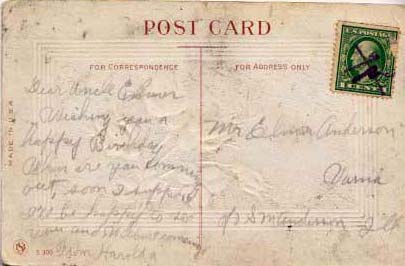 POST CARD
U.S. POSTAGE
1 CENT 1
FOR CORRESPONDENCE
FOR ADDRESS ONLY
MADE IN U.S.A.
Dear Uncle Elmer
Wishing you a
happy Birthday
When are you coming
out, soon I suppose
I'll be happy to see
you and
From Harold
Mr Elmer Anderson
Varna
Ill
S 300